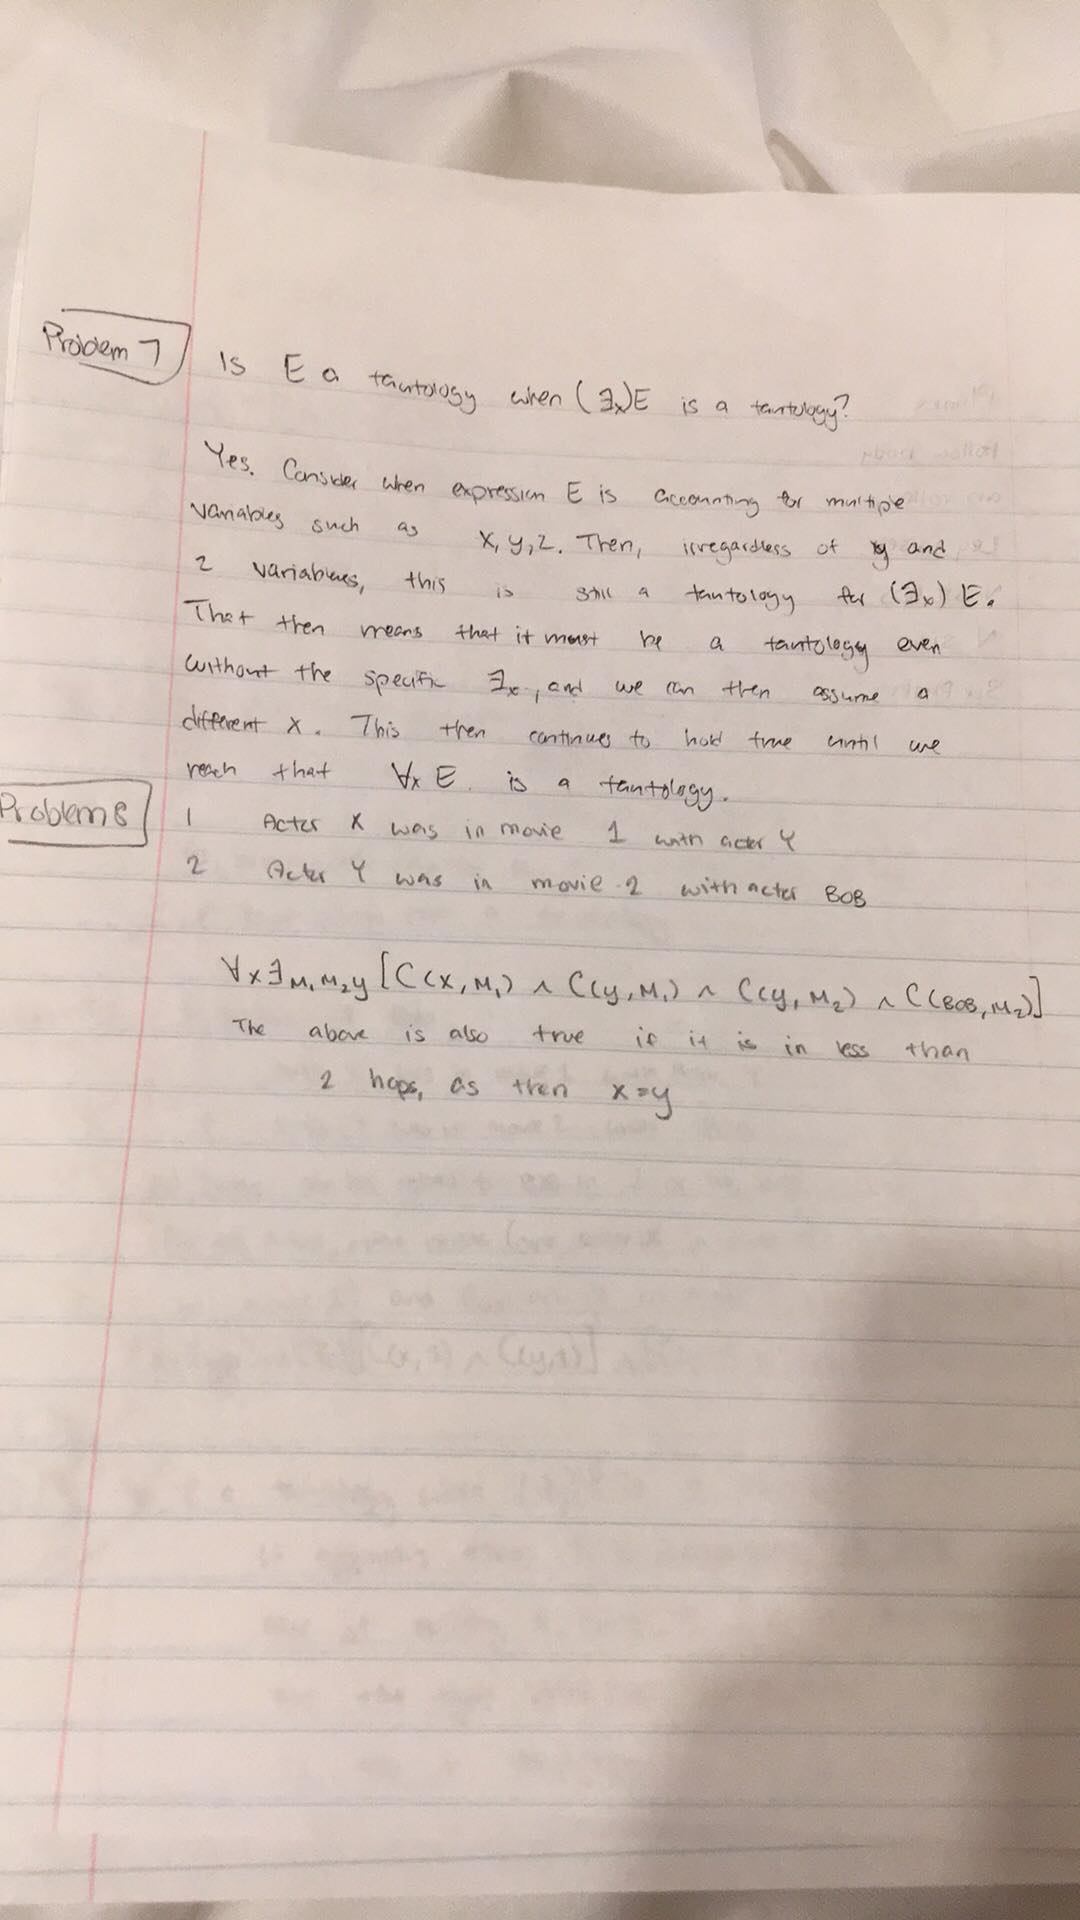 Problem 7
Is E a tautology when (∃x)E is a tautology?
Yes. Consider when expression E is accounting for multiple
variables such as x, y, z. Then, irregardless of y and
z variables, this is still a tautology for (∃x) E.
That then means that it must be a tautology even
without the specific ∃x, and we can then assume a
different x. This then continues to hold true until we
reach that ∀x E is a tautology.
Problem 8
1 Actor X was in movie 1 with actor Y
2 Actor Y was in movie 2 with actor BOB
∀x∃M₁M₂y [C(x, M₁) ∧ C(y, M₁) ∧ C(y, M₂) ∧ C(BOB, M₂)]
The above is also true if it is in less than
2 hops, as then x=y